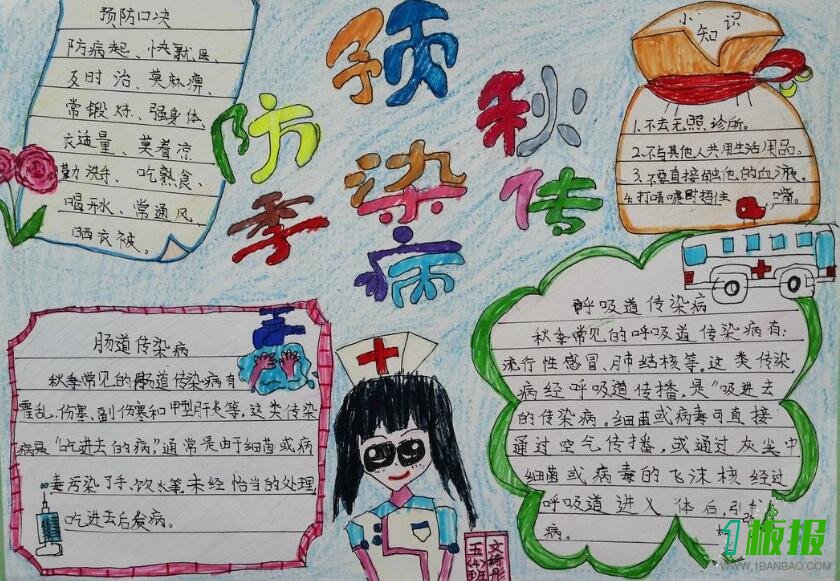 预防口决
防病起、快就医、
及时治、莫麻痹、
常锻炼、强身体、
衣适量、莫着凉
勤洗手、吃熟食、
喝开水、常通风、
晒衣被。
预防秋季传染病
小知识
1.不去无照诊所。
2.不与其他人共用生活用品。
3.不要直接触他的血液。
4.打喷嚏时捂住嘴。
肠道传染病
秋季常见的肠道传染病有
霍乱、伤寒、副伤寒和甲型肝炎等。这类传染
病是“吃进去的病”通常是由于细菌或病
毒污染了手、饮水等，未经恰当的处理，
吃进去后发病。
呼吸道传染病
秋季常见的呼吸道传染病有：
流行性感冒、肺结核等。这类传染
病经呼吸道传播，是“吸进去
的传染病。细菌或病毒可直接
通过空气传播，或通过灰尘中
细菌或病毒的飞沫核经过
呼吸道进入体后，引
病。
五
班
1板报
WWW.1BANBAO.COM